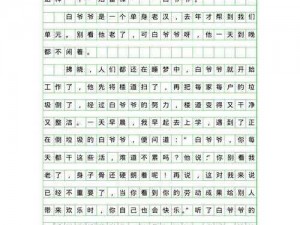 白爷爷是一个单身老汉，去年才帮到我们
单元。别看他老了，可白爷爷呀，他一天到晚
都不闲着。
拂晓，人们都还在睡梦中，白爷爷就开始
工作了，他先将楼道扫了，再把每家每户的垃
圾倒了，经过白爷爷的努力，楼道变得又干净
又整洁。一天早晨，我早起去上学，遇到了正在
倒垃圾的白爷爷，便问道：“白爷爷，你每
天都干这些活，难道不累吗？”他说：“你别看我
老了，身子骨还硬朗着呢！再说，这对我来说
已经不重要了，当你看到你的劳动成果给别人
带来欢乐时，你自己也会快乐。”听了白爷爷的